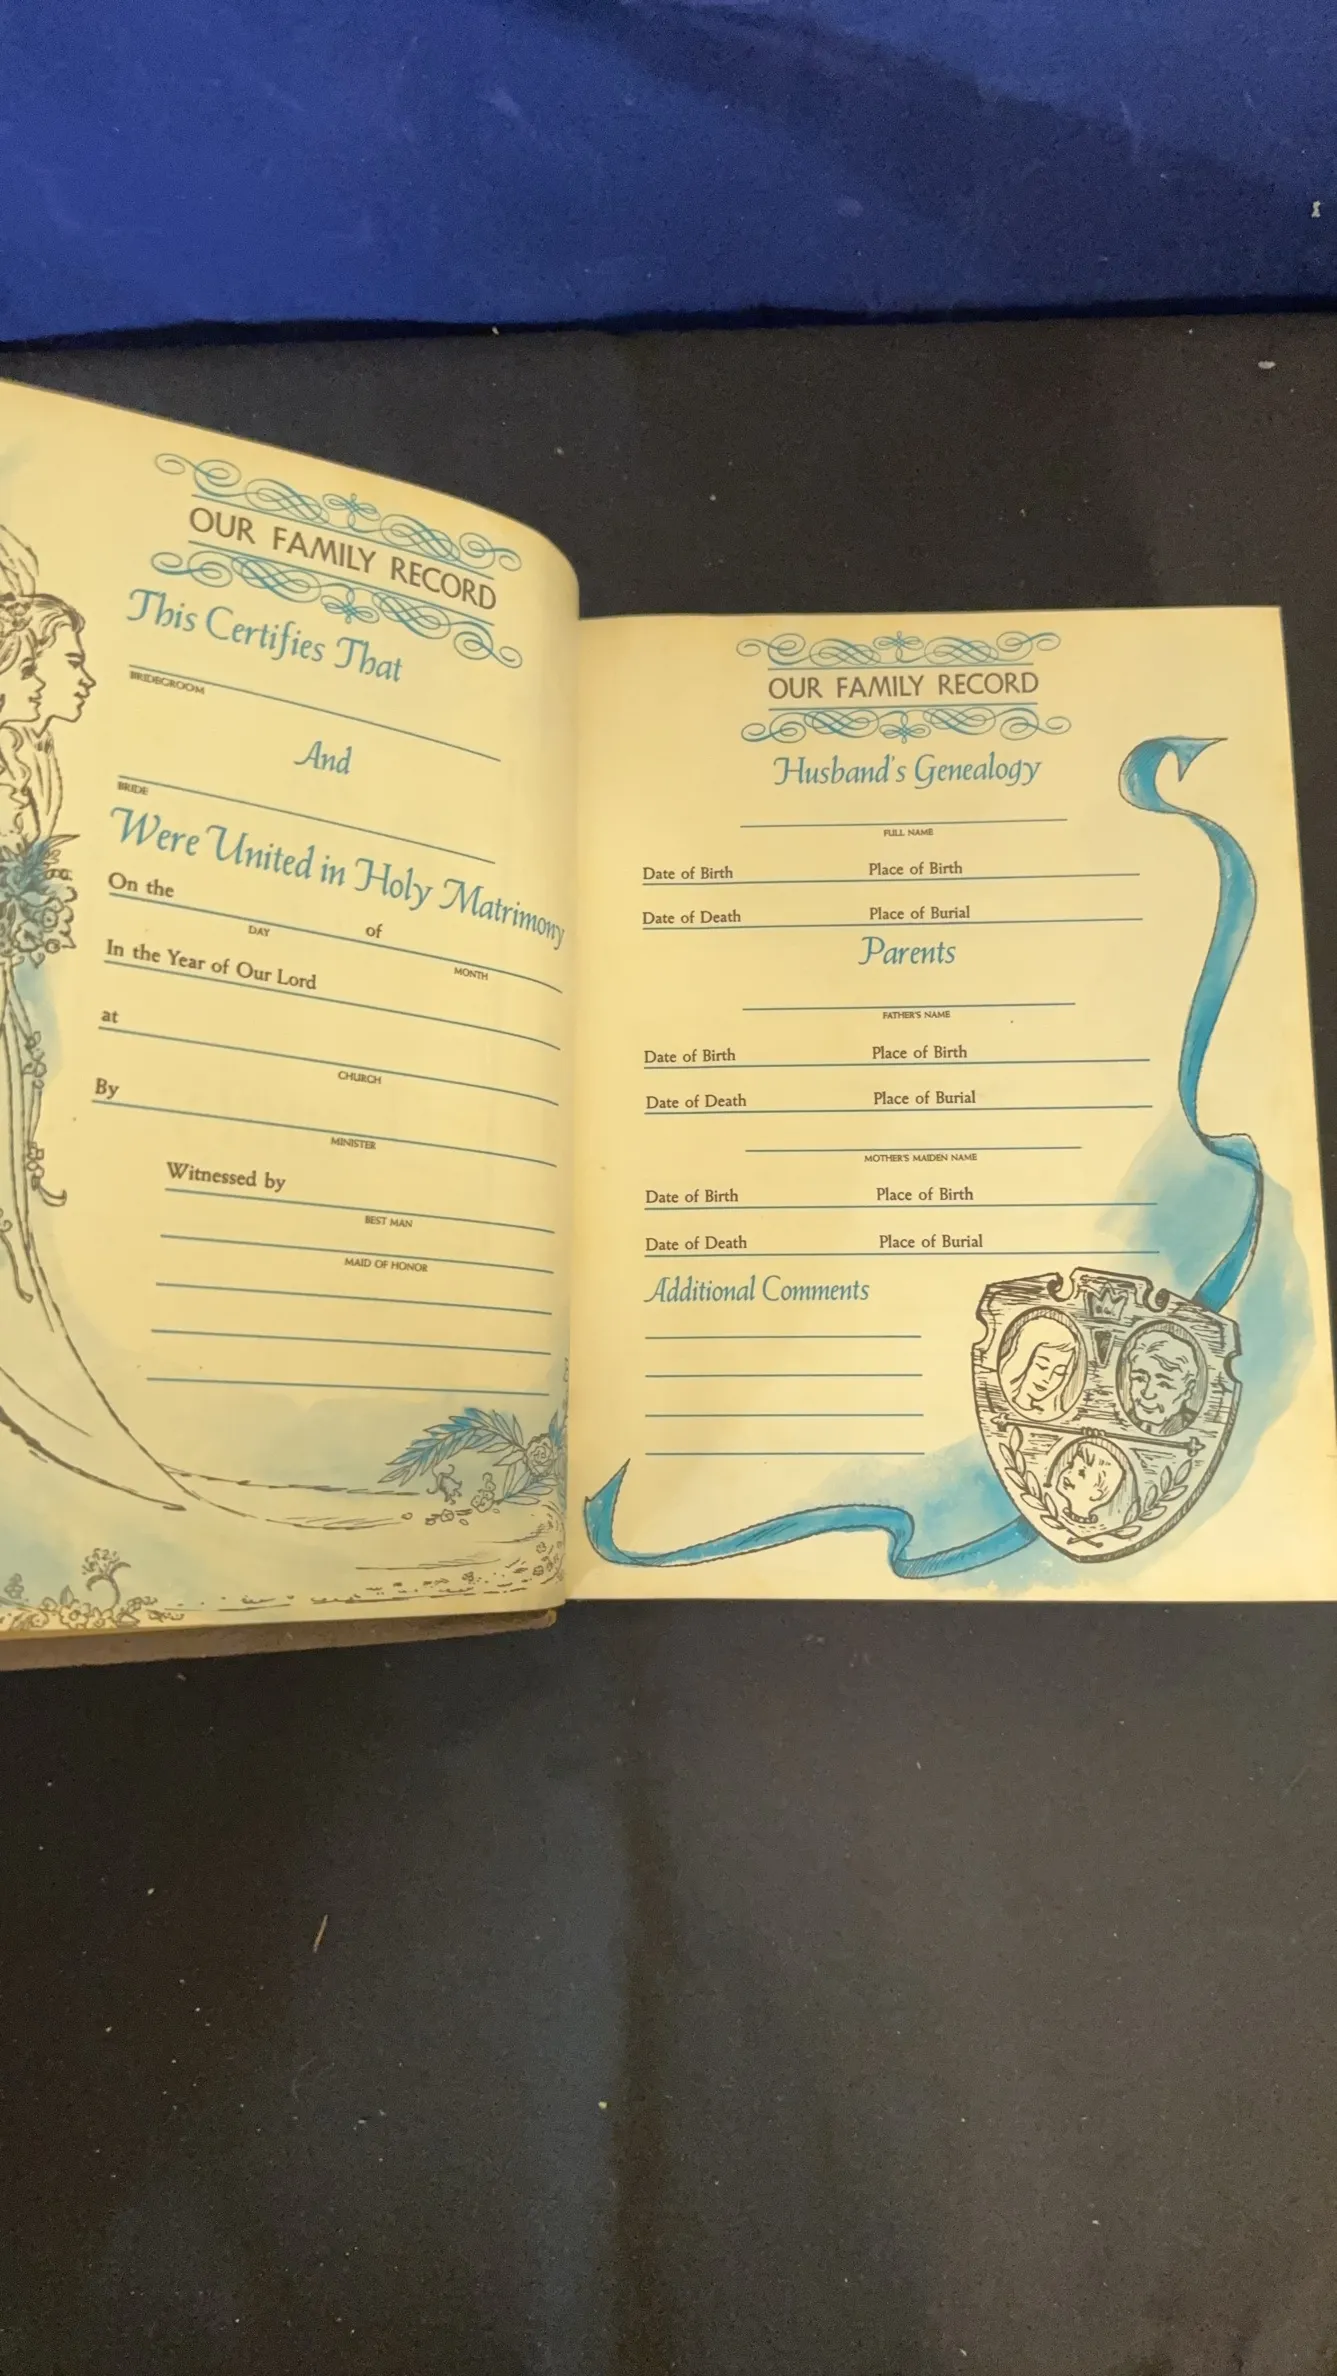 OUR FAMILY RECORD
This Certifies That
BRIDEGROOM
And
BRIDE
Were United in Holy Matrimony
On the
DAY
of
MONTH
In the Year of Our Lord
at
CHURCH
By
MINISTER
Witnessed by
BEST MAN
MAID OF HONOR
OUR FAMILY RECORD
Husband's Genealogy
FULL NAME
Date of Birth Place of Birth
Date of Death Place of Burial
Parents
FATHER'S NAME
Date of Birth Place of Birth
Date of Death Place of Burial
MOTHER'S MAIDEN NAME
Date of Birth Place of Birth
Date of Death Place of Burial
Additional Comments